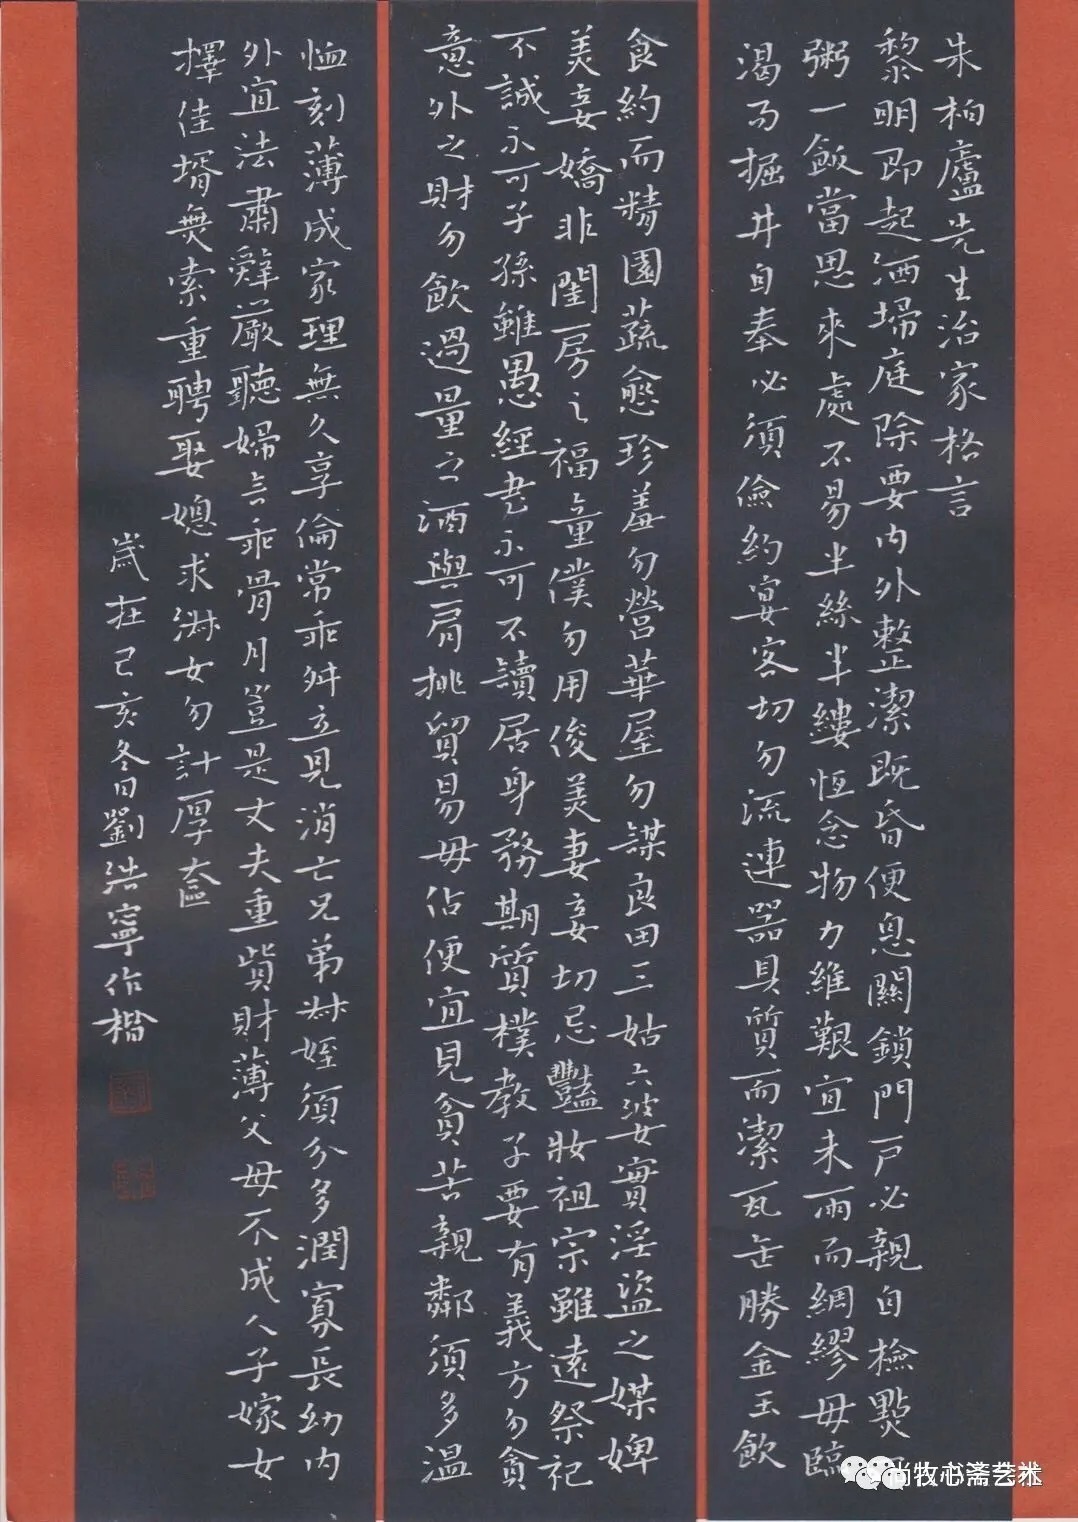 朱柏廬先生治家格言
黎明即起洒埽庭除要內外整潔既昏便息關鎖門戶必親自檢點一
粥一飯當思來處不易半絲半縷恆念物力維艱宜未雨而綢繆毋臨
渴而掘井自奉必須儉約宴客切勿流連器具質而潔瓦缶勝金玉飲
食約而精園蔬愈珍羞勿營華屋勿謀良田三姑六婆實淫盜之媒婢
美妾嬌非閨房之福童僕勿用俊美妻妾切忌豔妝祖宗雖遠祭祀
不誠不可子孫雖愚經書不可不讀居身務期質樸教子要有義方勿貪
意外之財勿飲過量之酒與肩挑貿易毋佔便宜見貧苦親鄰須多溫
恤刻薄成家理無久享倫常乖舛立見消亡兄弟叔姪須分多潤寡長幼內
外宜法肅辭嚴聽婦言乖骨月豈是丈夫重貲財薄父母不成人子嫁女
擇佳壻無索重聘娶媳求淑女勿計厚奩
歲在己亥冬日劉浩寧作楷
尚牧心斋艺术